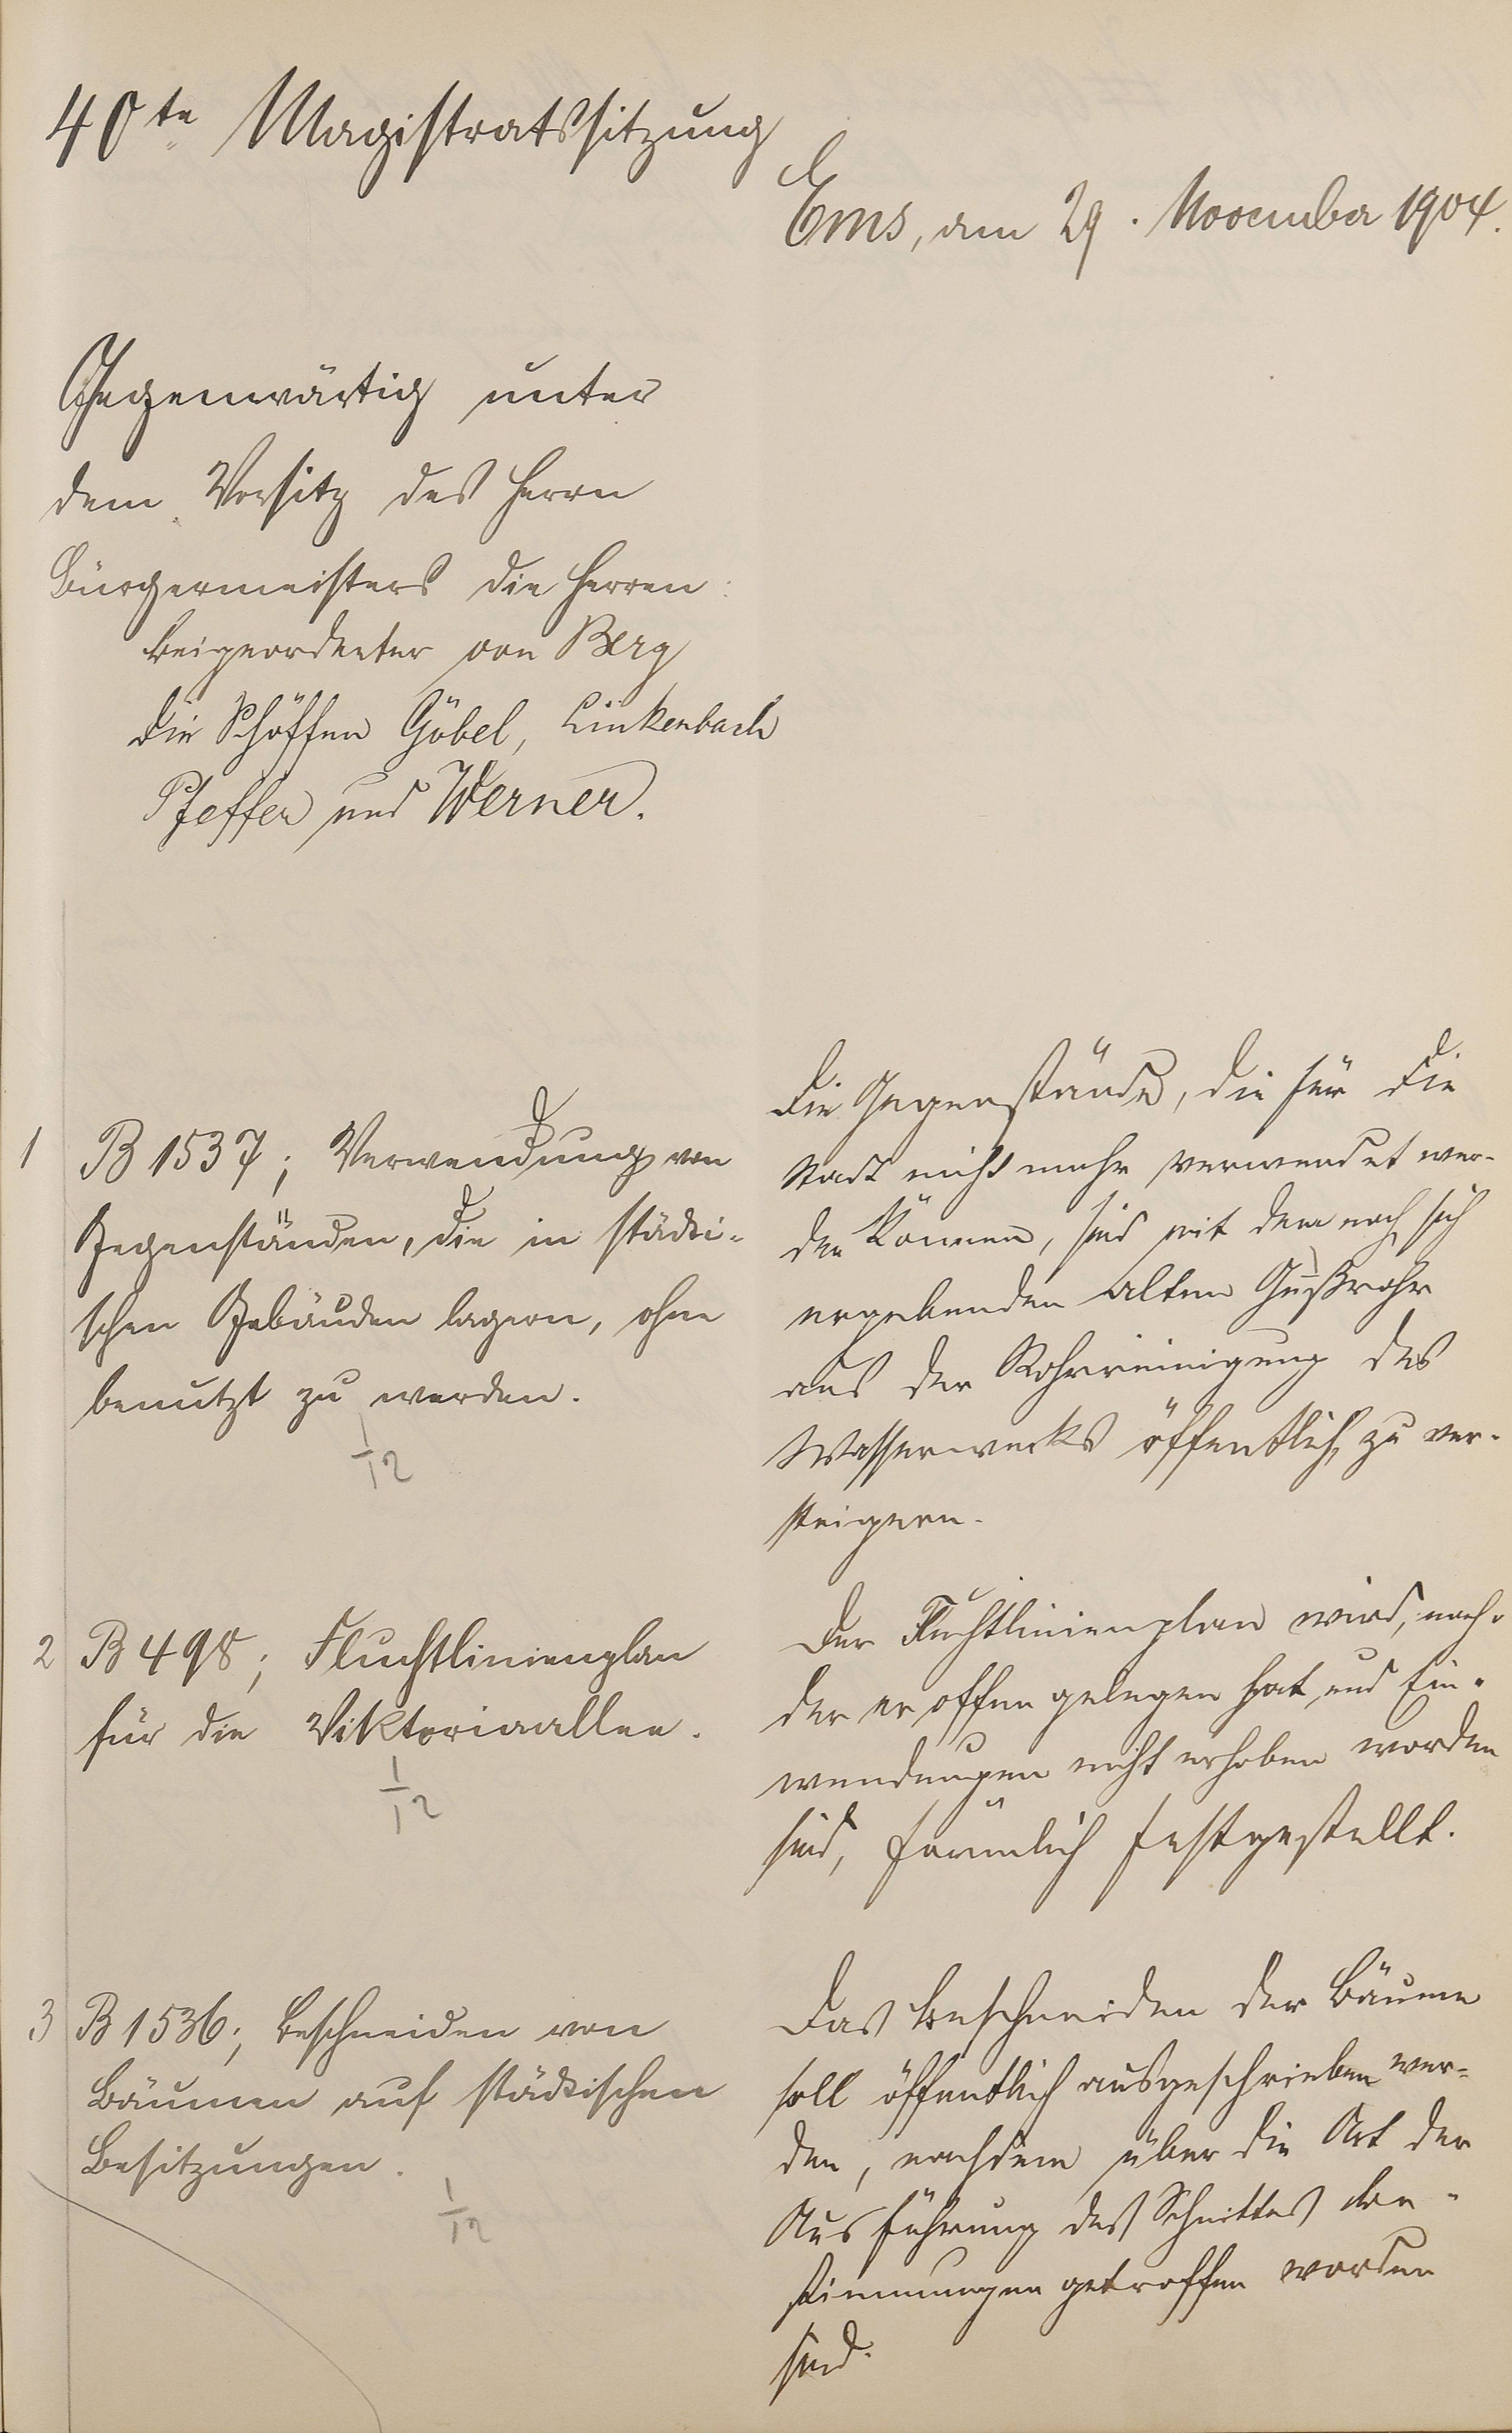 40te Magistratssitzung
Ems, am 29. November 1904.
Gegenwärtig unter
dem Vorsitz des Herrn
Bürgermeisters die Herren:
Beigeordneter von Berg
die Schöffen Göbel, Linkenbach
Pfeffer und Werner.
1 B 1537; Verwendung von
Gegenständen, die in städti-
schen Gebäuden lagern, ohne
benutzt zu werden.
1/12
Die Gegenstände, die für die
Stadt nicht mehr verwendet wer-
den können, sind mit dem noch sich
ergebenden alten Gußrohr
aus der Rohrreinigung des
Wasserwerks öffentlich zu ver-
steigern.
2 B 498; Fluchtlinienplan
für die Viktoriaallee.
1/12
Der Fluchtlinienplan wird, nach-
der er offen gelegen hat, und Ein-
wendungen nicht erhoben worden
sind, förmlich festgestellt.
3 B 1536; Beschneiden von
Bäumen auf städtischen
Besitzungen.
1/12
Das Beschneiden der Bäume
soll öffentlich ausgeschrieben wer-
den, nachdem über die Art der
Ausführung des Schnittes Be-
stimmungen getroffen worden
sind.